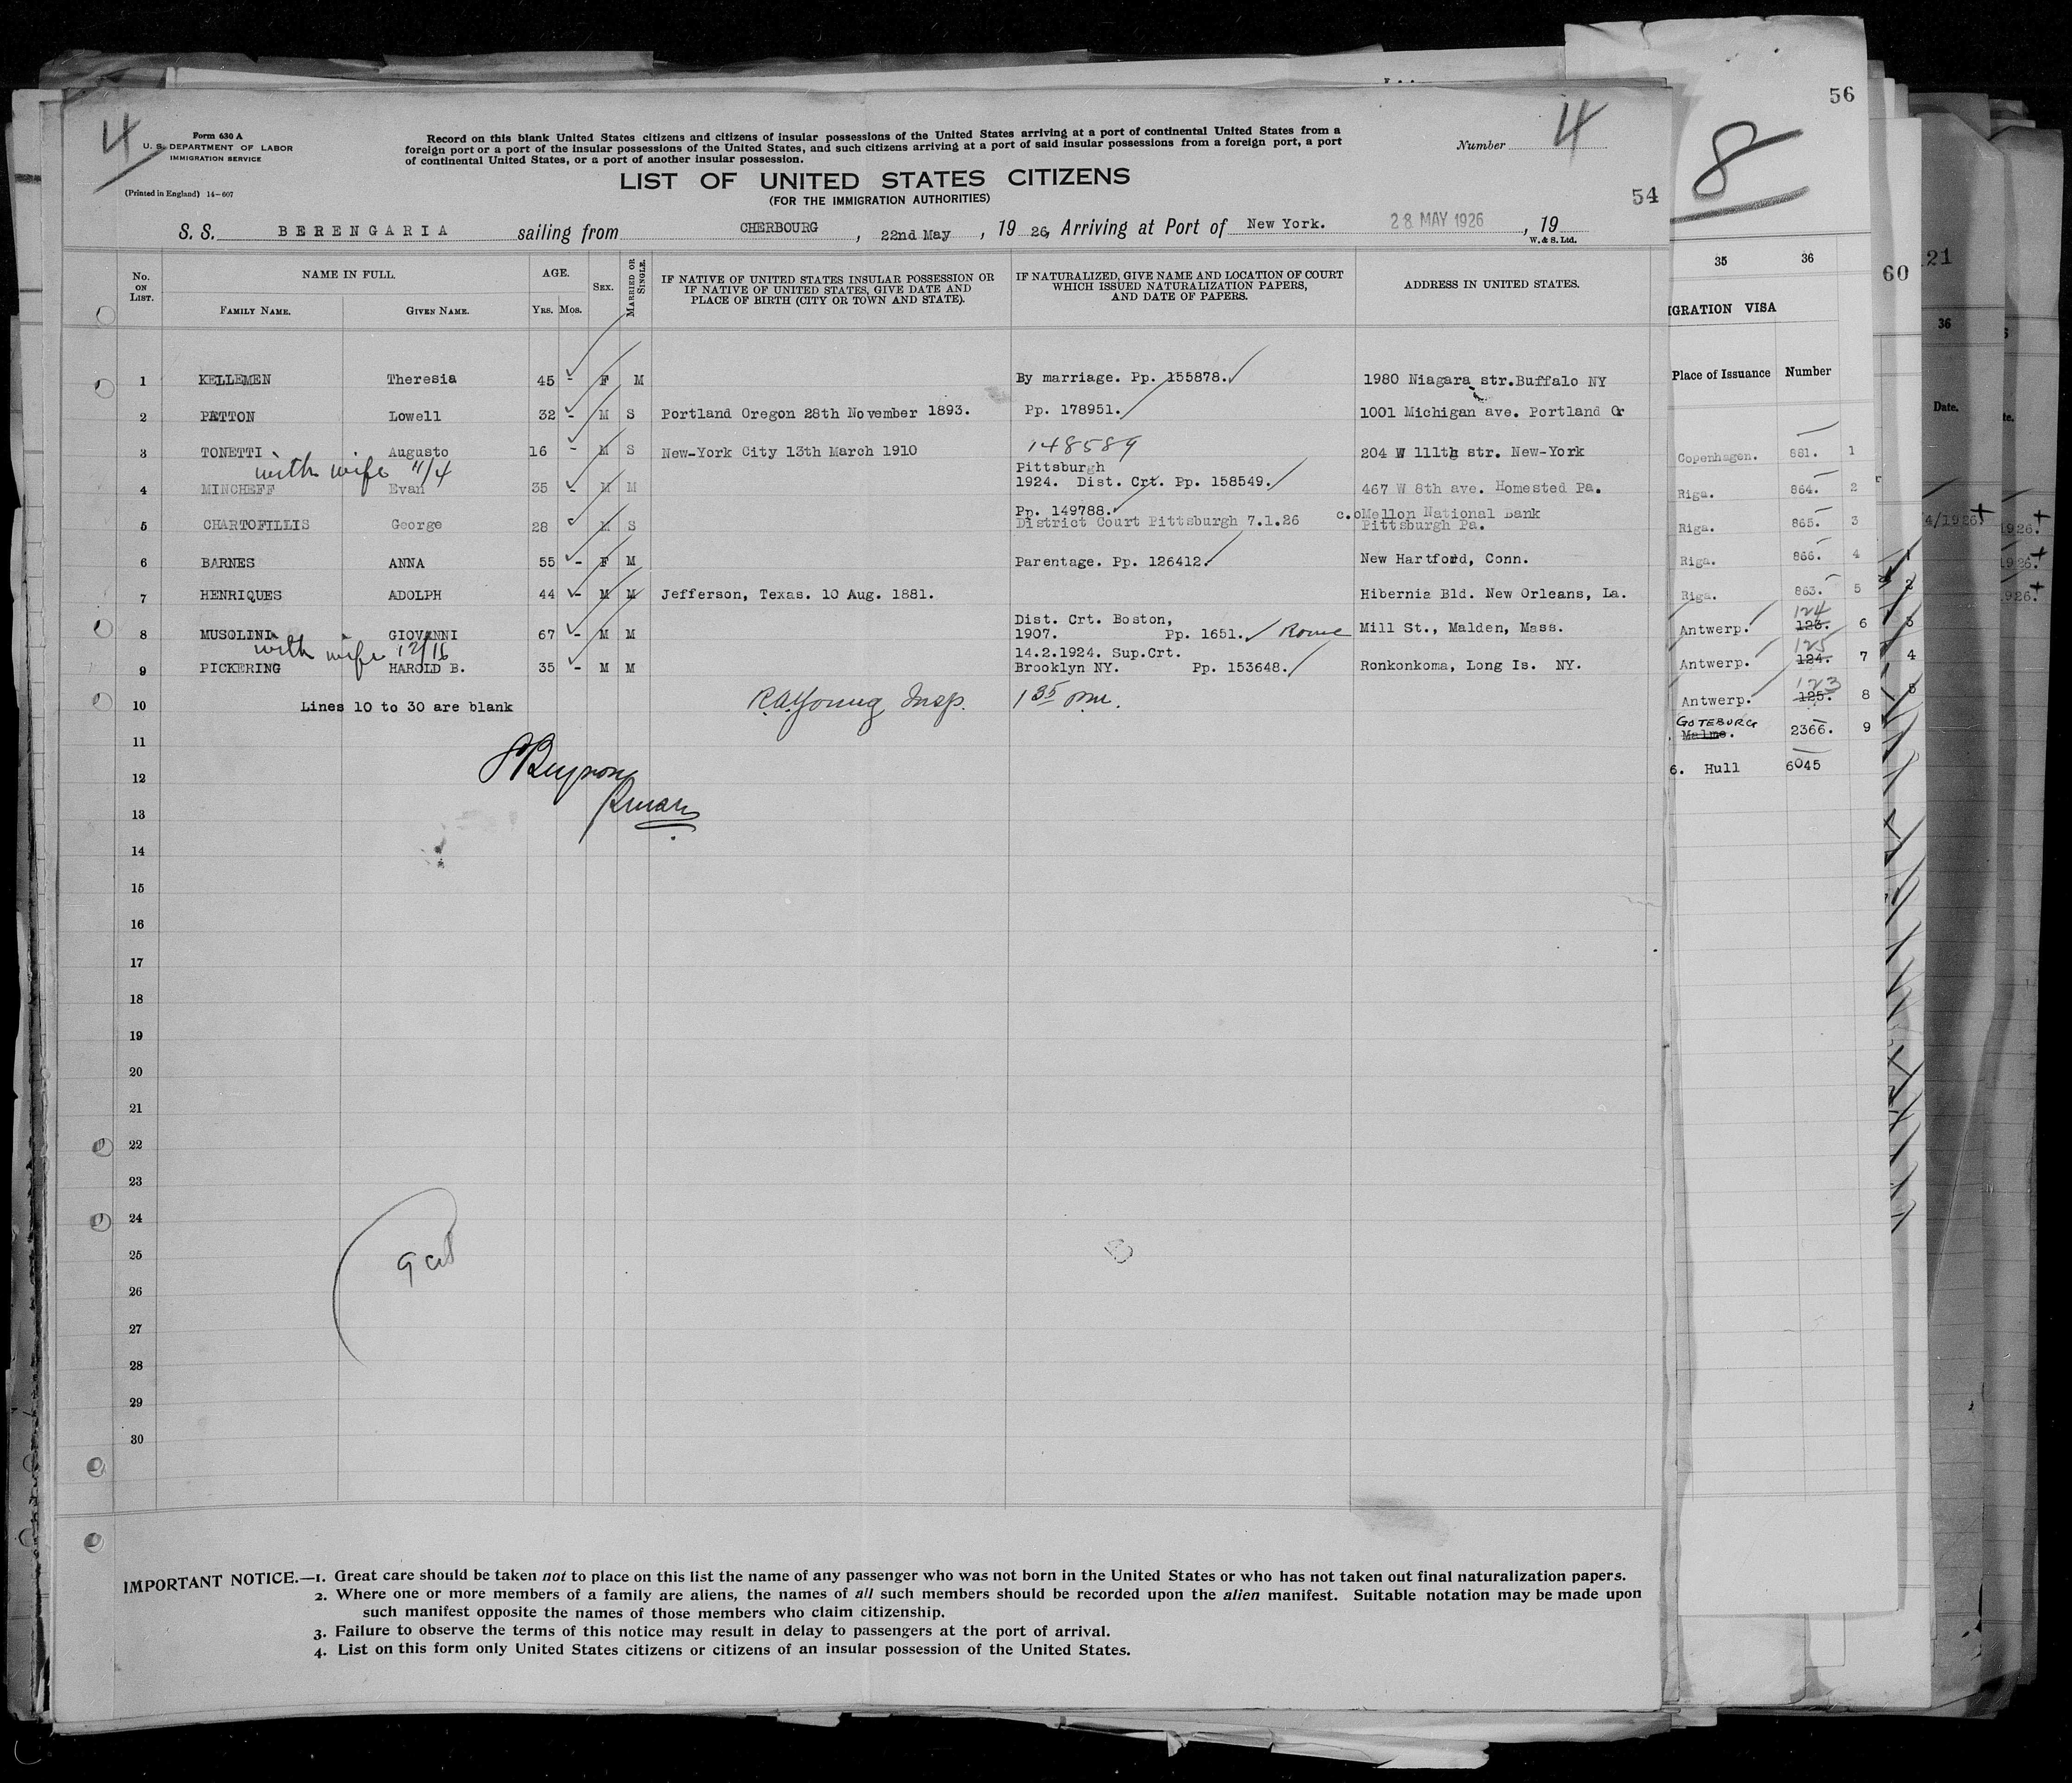 56
4
Form 630 A
U. S. DEPARTMENT OF LABOR
IMMIGRATION SERVICE
(Printed in England) 14-607
Record on this blank United States citizens and citizens of insular possessions of the United States arriving at a port of continental United States from a
foreign port or a port of the insular possessions of the United States, and such citizens arriving at a port of said insular possessions from a foreign port, a port
of continental United States, or a port of another insular possession.
Number 4
LIST OF UNITED STATES CITIZENS
(FOR THE IMMIGRATION AUTHORITIES)
54
8
S. S. BERENGARIA sailing from CHERBOURG, 22nd May, 1926, Arriving at Port of New York. 28 MAY 1926, 19
W. & S. Ltd.
No. ON LIST.
NAME IN FULL.
FAMILY NAME. GIVEN NAME.
AGE.
YRS. MOS.
SEX.
MARRIED OR SINGLE.
IF NATIVE OF UNITED STATES INSULAR POSSESSION OR
IF NATIVE OF UNITED STATES, GIVE DATE AND
PLACE OF BIRTH (CITY OR TOWN AND STATE).
IF NATURALIZED, GIVE NAME AND LOCATION OF COURT
WHICH ISSUED NATURALIZATION PAPERS,
AND DATE OF PAPERS.
ADDRESS IN UNITED STATES.
1 KELLEMEN Theresia 45 - F M By marriage. Pp. 155878. 1980 Niagara str.Buffalo NY
2 PATTON Lowell 32 - M S Portland Oregon 28th November 1893. Pp. 178951. 1001 Michigan ave. Portland Or
3 TONETTI Augusto 16 - M S New-York City 13th March 1910 148589 204 W 111th str. New-York
with wife 11/4
Pittsburgh
4 MINCHEFF Evan 35 - M M 1924. Dist. Crt. Pp. 158549. 467 W 8th ave. Homested Pa.
Pp. 149788. c.o Mellon National Bank
5 CHARTOFILLIS George 28 M S District Court Pittsburgh 7.1.26 Pittsburgh Pa.
6 BARNES ANNA 55 - F M Parentage. Pp. 126412. New Hartford, Conn.
7 HENRIQUES ADOLPH 44 - M M Jefferson, Texas. 10 Aug. 1881. Hibernia Bld. New Orleans, La.
Dist. Crt. Boston,
8 MUSOLINI GIOVANNI 67 - M M 1907. Pp. 1651. Rome Mill St., Malden, Mass.
with wife 12/16
14.2.1924. Sup.Crt.
9 PICKERING HAROLD B. 35 - M M Brooklyn NY. Pp. 153648. Ronkonkoma, Long Is. NY.
10 Lines 10 to 30 are blank R.A.Young Insp. 1 35 pm.
11
12
13
14
15
16
17
18
19
20
21
22
23
24
25
26
27
28
29
30
IMPORTANT NOTICE.—1. Great care should be taken not to place on this list the name of any passenger who was not born in the United States or who has not taken out final naturalization papers.
2. Where one or more members of a family are aliens, the names of all such members should be recorded upon the alien manifest. Suitable notation may be made upon
such manifest opposite the names of those members who claim citizenship.
3. Failure to observe the terms of this notice may result in delay to passengers at the port of arrival.
4. List on this form only United States citizens or citizens of an insular possession of the United States.
35 36
IGRATION VISA
Place of Issuance Number
Copenhagen. 881. 1
Riga. 864. 2
Riga. 865. 3
Riga. 866. 4
Riga. 863. 5
124
Antwerp. 123. 6
125
Antwerp. 124. 7
123
Antwerp. 125. 8
GOTEBURG
Malmo. 2366. 9
6. Hull 6045
60
1
2
3
4
5
121
36
Date.
4/1926.
te.
1926.
1926.
926.